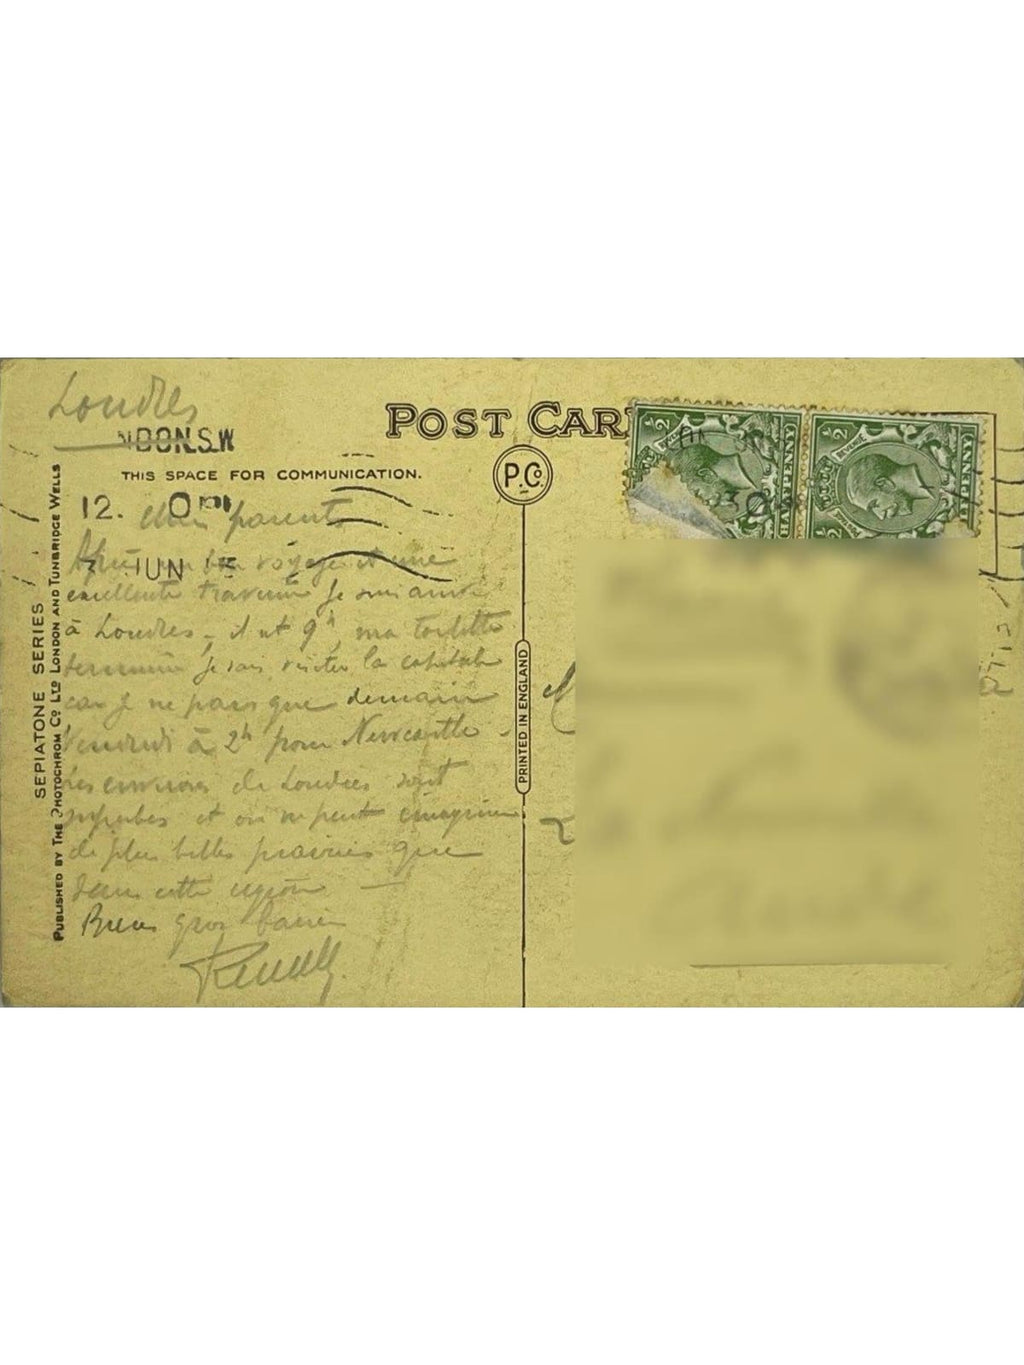 Londres
NDON.S.W
POST CAR
THIS SPACE FOR COMMUNICATION.
P.Co.
12. 0 PM
JUN
30
1/2 HALFPENNY
1/2 REVENUE PENNY
chers parents
Après un bon voyage et une
excellente traversée je suis arrivé
à Londres, il est 9h, ma toilette
terminée je vais visiter la capitale
car je ne pars que demain
Vendredi à 2h pour Newcastle.
Les environs de Londres sont
superbes et on ne peut imaginer
de plus belles prairies que
dans cette région —
Bien gros baisers
SEPIATONE SERIES
PUBLISHED BY THE PHOTOCHROM CO LTD LONDON AND TUNBRIDGE WELLS
PRINTED IN ENGLAND